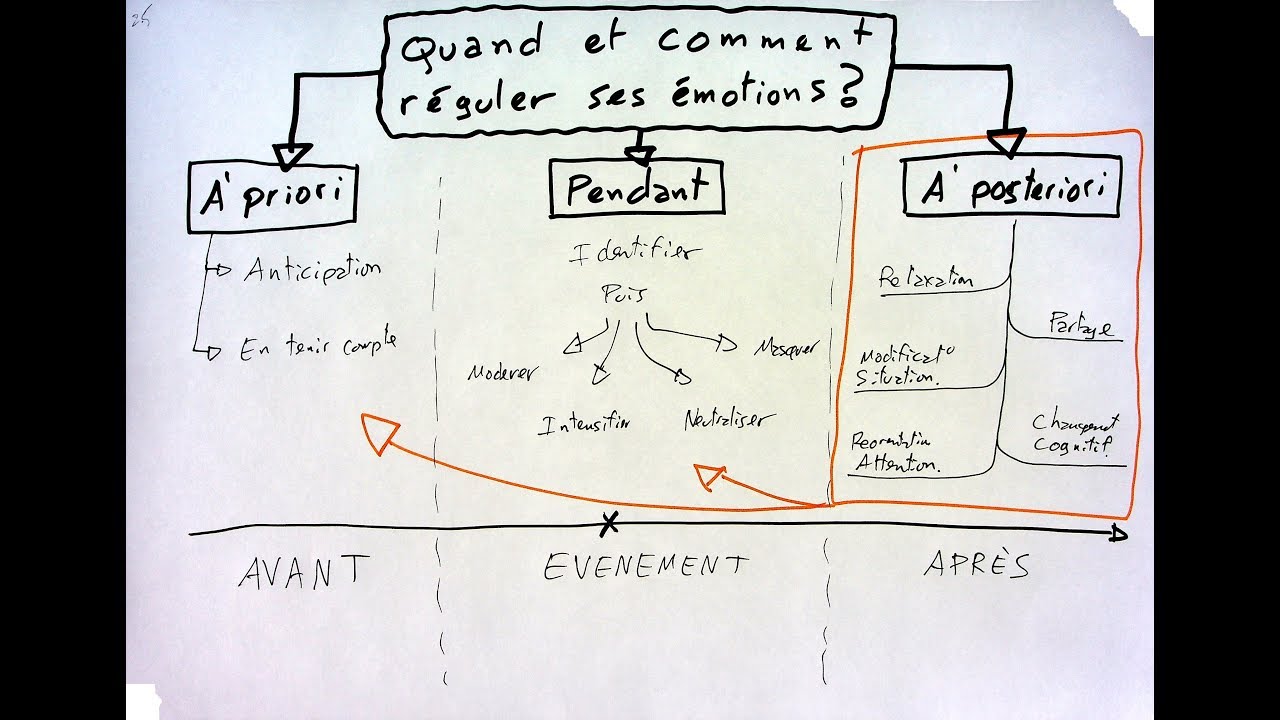 Quand et comment
réguler ses émotions?
A' priori
Pendant
A' posteriori
Anticipation
En tenir compte
Identifier
Puis
Moderer
Intensifier
Neutraliser
Masquer
Relaxation
Partage
Modificat°
Situation.
Reorientatin
Attention.
Changement
Cognitif.
AVANT
EVENEMENT
APRÈS